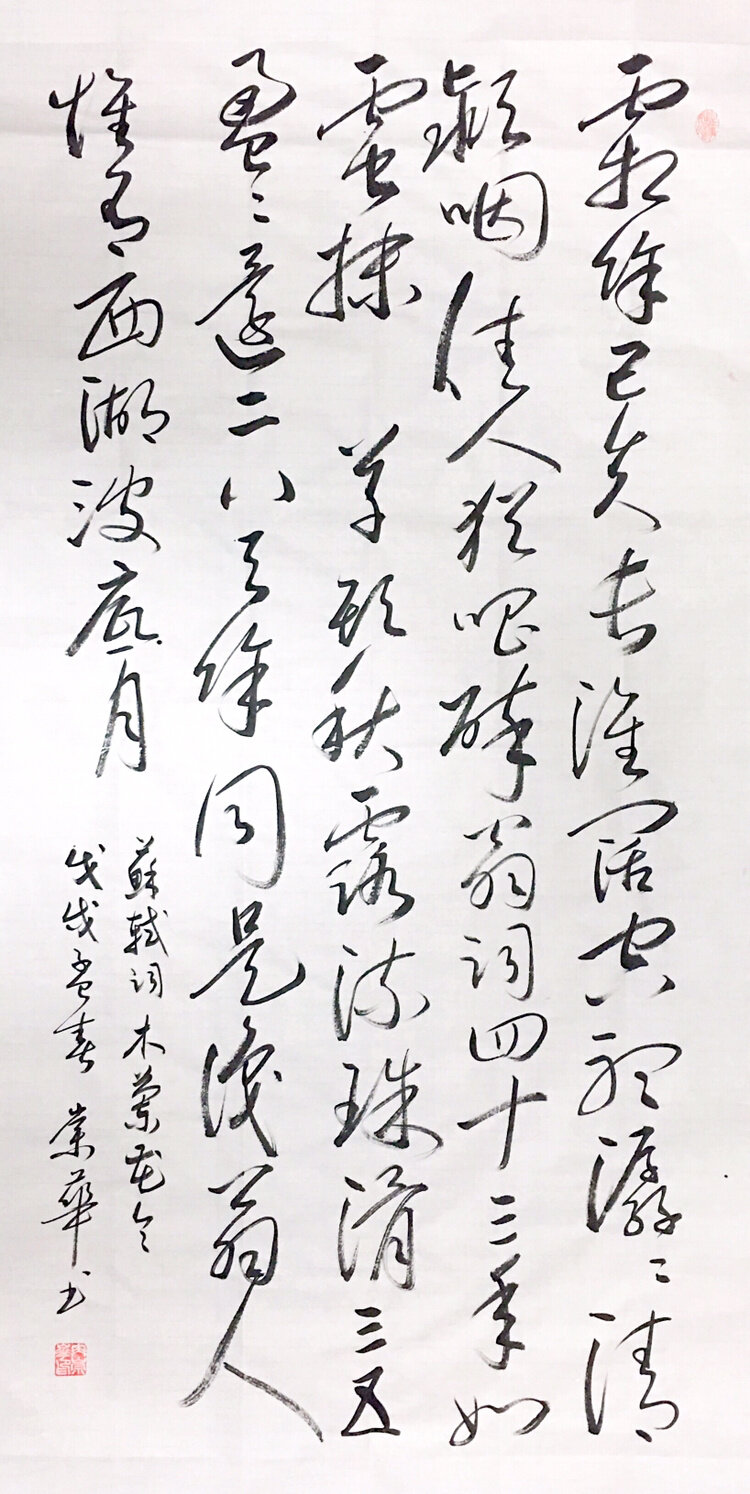 霜餘已失長淮闊空聽潺〻清
潁咽佳人猶唱醉翁詞四十三年如
電抹 草頭秋露流珠滑三五
盈〻還二八與餘同是識翁人
惟有西湖波底月
蘇軾詞木蘭花令
戊戌孟春 崇華书